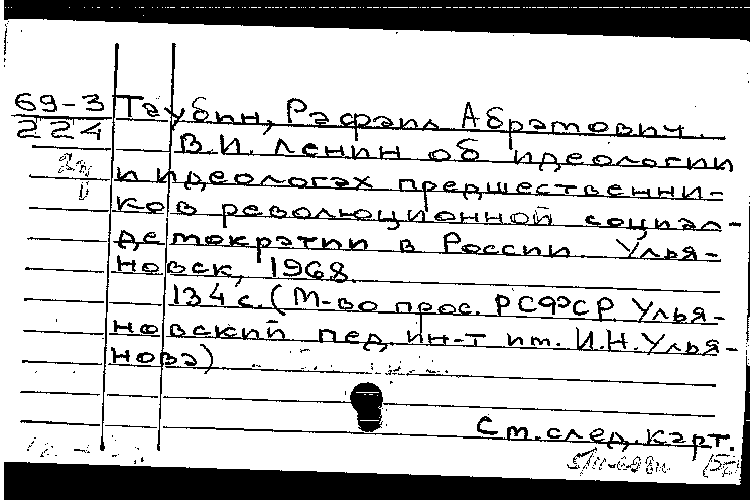 69-3 Таубин, Рафаил Абрамович.
224 В.И. Ленин об идеологии
и идеологах предшественни-
ков революционной социал-
демократии в России. Улья-
новск, 1968.
134 с. (М-во прос. РСФСР Улья-
новский пед. ин-т им. И.Н. Улья-
нова)
См. след. карт.